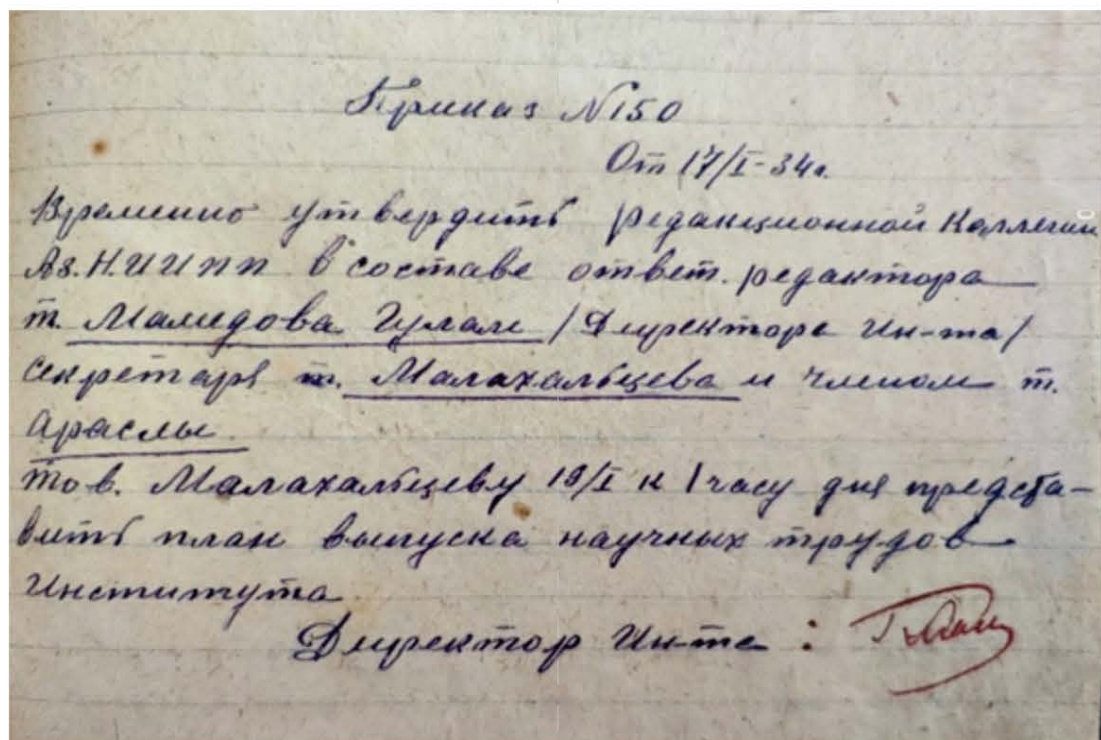 Приказ №150
От 17/I-34г.
Временно утвердить редакционной Коллегии
Аз.Н.ИИПП в составе ответ. редактора
т. Мамедова Гулам /Директора Ин-та/
секретаря т. Малахальцева и членом т.
Араслы
тов. Малахальцеву 19/I к 1 часу дня предста-
вить план выпуска научных трудов
Института
Директор Ин-та :